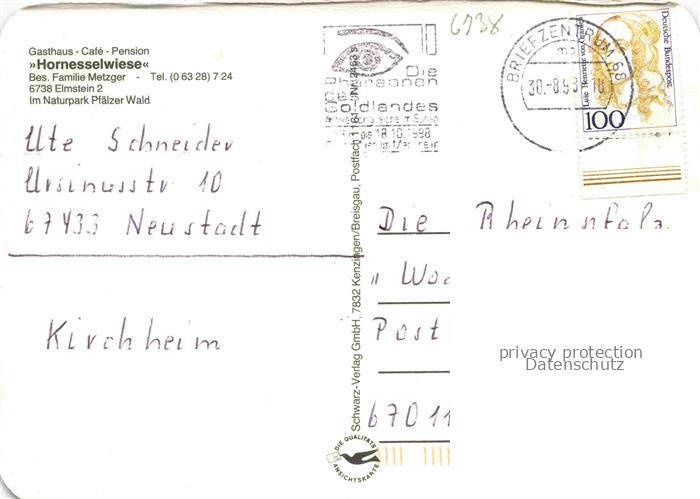 6738
Gasthaus - Café - Pension
»Hornesselwiese«
Bes. Familie Metzger - Tel. (0 63 28) 7 24
6738 Elmstein 2
Im Naturpark Pfälzer Wald
Die
Pharaonen
des
Goldlandes
18.10.1998
BRIEFZENTRUM 68
30.-8.98
Deutsche Bundespost
Luise Henriette von Oranien
100
Ute Schneider
Ursinusstr 10
67433 Neustadt
Kirchheim
Schwarz-Verlag GmbH, 7832 Kenzingen/Breisgau, Postfach 1164
Die Rheinpfalz
Post
67011
privacy protection
Datenschutz
DIE QUALITÄTS
ANSICHTSKARTE